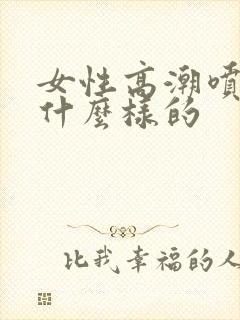 女性高潮噴
什麼樣的
比我幸福的人